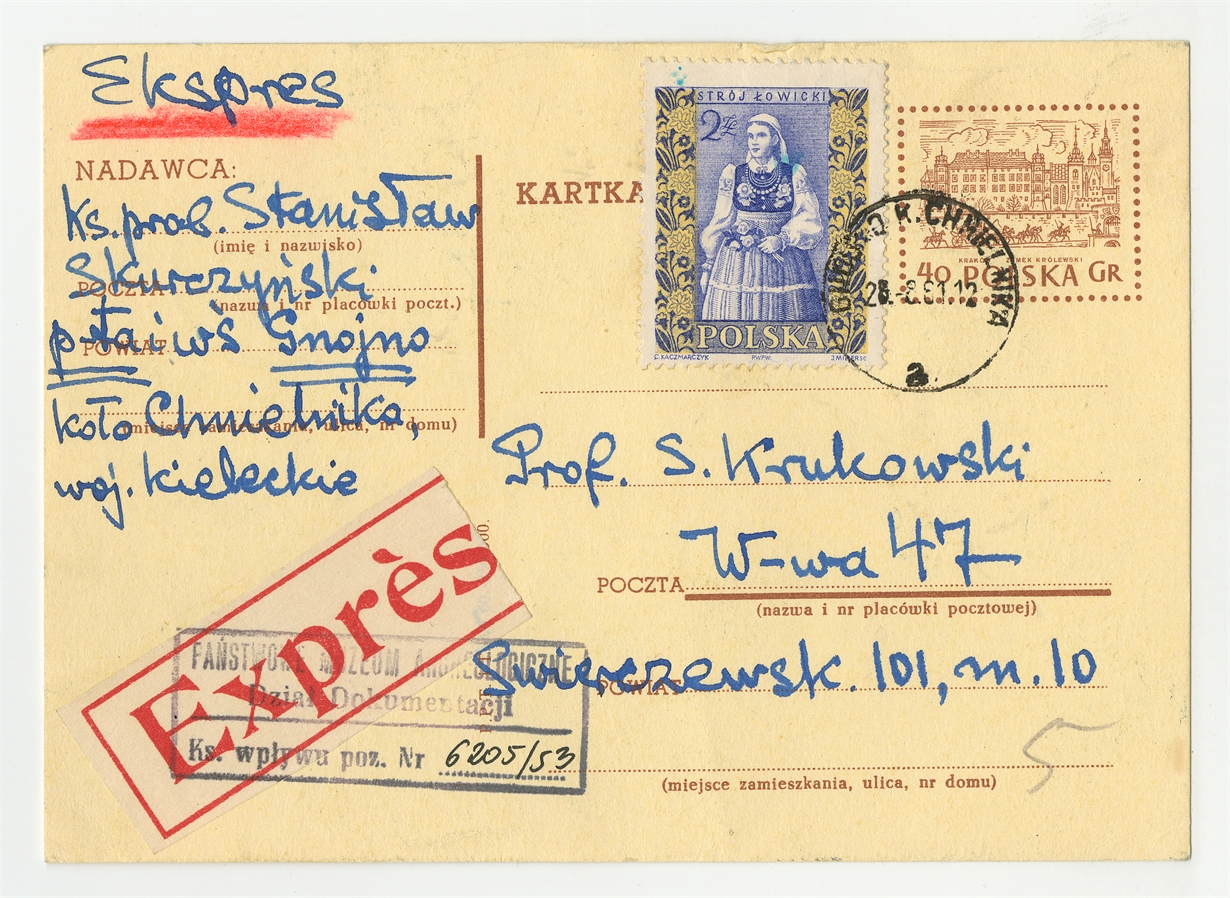 Ekspres
NADAWCA:
Ks. prob. Stanisław
(imię i nazwisko)
Skurczyński
POCZTA
(nazwa i nr placówki poczt.)
p-ta i wś Gnojno
POWIAT
koło Chmielnika,
(miejsce zamieszkania, ulica, nr domu)
woj. Kieleckie
KARTKA
STRÓJ ŁOWICKI
2 Zł
POLSKA
C.KACZMARCZYK PWPW. J.MILLER SC
KRAKÓW ZAMEK KRÓLEWSKI
40 POLSKA GR
GNOJNO K. CHMIELNIKA
61.12
a
Prof. S. Krukowski
W-wa 47
POCZTA
(nazwa i nr placówki pocztowej)
Świerczewsk. 101, m. 10
POWIAT
(miejsce zamieszkania, ulica, nr domu)
5
Exprès
PAŃSTWOWE MUZEUM ARCHEOLOGICZNE
Dział Dokumentacji
Ks. wpływu poz. Nr 6205/53